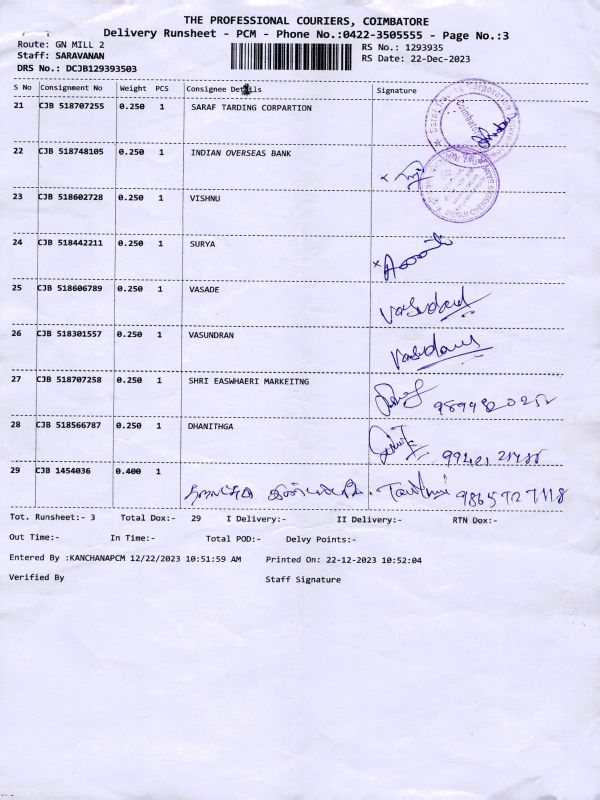 THE PROFESSIONAL COURIERS, COIMBATORE
Delivery Runsheet - PCM - Phone No.:0422-3505555 - Page No.:3
Route: GN MILL 2
RS No.: 1293935
Staff: SARAVANAN
RS Date: 22-Dec-2023
DRS No.: DCJB129393503
S No Consignment No Weight PCS Consignee Details Signature
21 CJB 518707255 0.250 1 SARAF TARDING CORPARTION
22 CJB 518748105 0.250 1 INDIAN OVERSEAS BANK
23 CJB 518602728 0.250 1 VISHNU
24 CJB 518442211 0.250 1 SURYA
25 CJB 518606789 0.250 1 VASADE
26 CJB 518301557 0.250 1 VASUNDRAN
27 CJB 518707258 0.250 1 SHRI EASWHAERI MARKEITNG
28 CJB 518566787 0.250 1 DHANITHGA
29 CJB 1454036 0.400 1 9865927118
Tot. Runsheet:- 3 Total Dox:- 29 I Delivery:- II Delivery:- RTN Dox:-
Out Time:- In Time:- Total POD:- Delvy Points:-
Entered By :KANCHANAPCM 12/22/2023 10:51:59 AM Printed On: 22-12-2023 10:52:04
Verified By Staff Signature